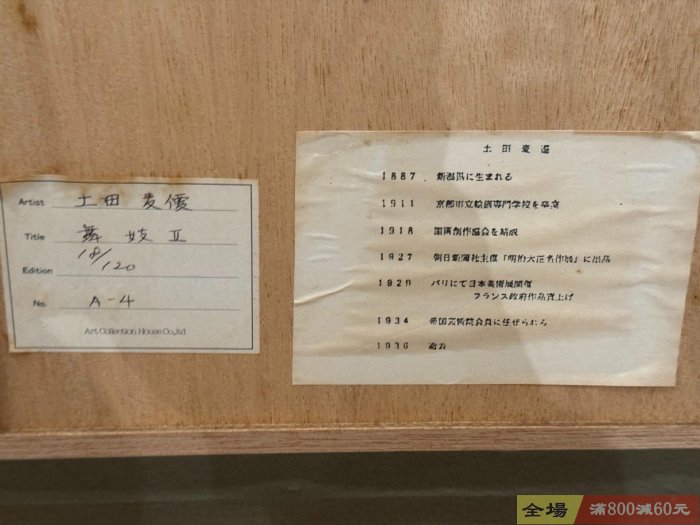 Artist 土田麦僊
Title 舞妓 Ⅱ
Edition 18/120
No. A-4
Art Collection House Co.,ltd
土田麦僊
1887 新潟県に生まれる
1911 京都市立絵画専門学校を卒業
1918 国画創作協会を結成
1927 朝日新聞社主催「明治大正名作展」に出品
1929 パリにて日本美術展開催
フランス政府作品買上げ
1934 帝国芸術院会員に任ぜられる
1936 逝去
全場 滿800減60元